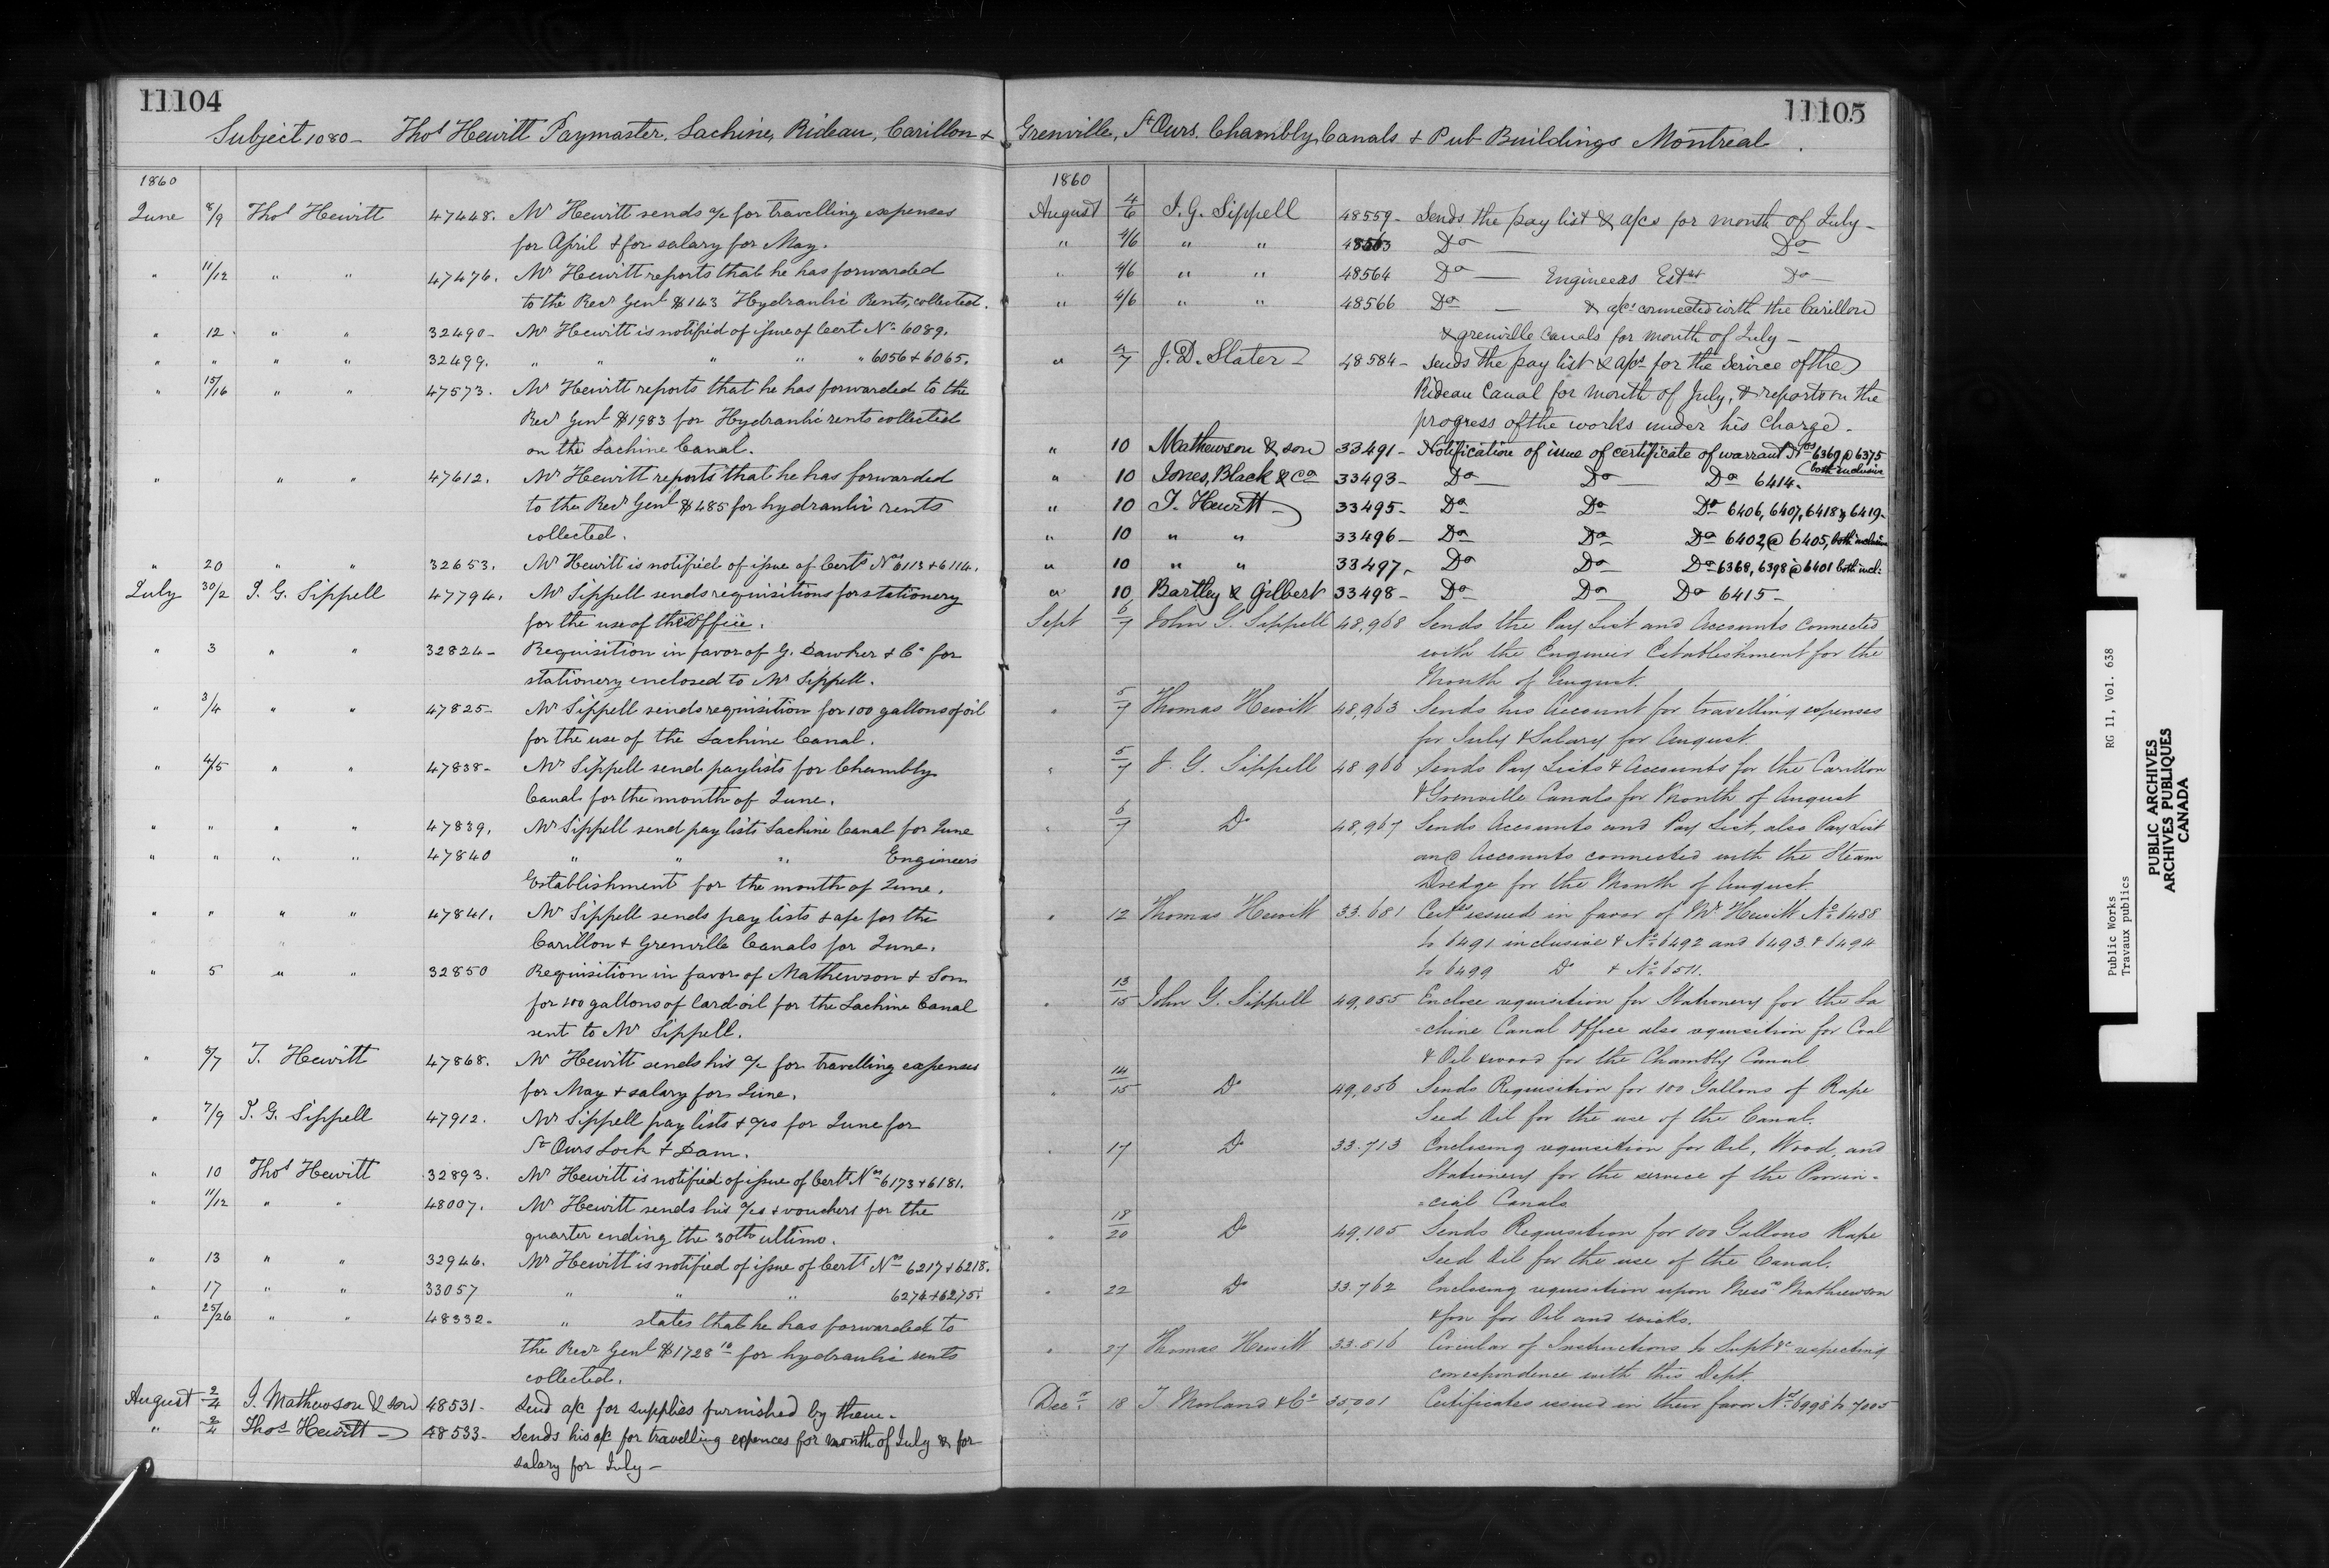 11104
Subject 1080 - Thos Hewitt Paymaster. Lachine, Rideau, Carillon +
1860
June 8/9 Thos Hewitt 47448. Mr Hewitt sends a/c for travelling expenses
for April & for salary for May.
" 11/12 " " 47476. Mr Hewitt reports that he has forwarded
to the Recr Genl $143 Hydraulic Rents, collected.
" 12 " " 32490- Mr Hewitt is notified of issue of Cert No 6089.
" " " " 32499. " " " " " 6056 + 6065.
" 15/16 " " 47573. Mr Hewitt reports that he has forwarded to the
Recr Genl $1983 for Hydraulic rents collected
on the Lachine Canal.
" " " 47612. Mr Hewitt reports that he has forwarded
to the Recr Genl $485 for hydraulic rents
collected.
" 20 " " 32653. Mr Hewitt is notified of issue of Certs Nos 6113 + 6114.
July 30/2 J. G. Sippell 47794. Mr Sippell sends requisitions for stationery
for the use of this Office.
" 3 " " 32824- Requisition in favor of G. Dawker + Co for
stationery enclosed to Mr Sippell.
" 3/4 " " 47825- Mr Sippell sends requisition for 100 gallons of oil
for the use of the Lachine Canal.
" 4/5 " " 47838- Mr Sippell send paylists for Chambly
Canal for the month of June.
" " " " 47839. Mr Sippell send pay lists Lachine Canal for June
" " " " 47840 " " " Engineers
Establishment for the month of June.
" " " " 47841. Mr Sippell sends pay lists + a/cs for the
Carillon + Grenville Canals for June.
" 5 " " 32850 Requisition in favor of Mathewson + Son
for 100 gallons of Lard oil for the Lachine Canal
sent to Mr Sippell.
" 6/7 T. Hewitt 47868. Mr Hewitt sends his a/c for travelling expenses
for May + salary for June.
" 7/9 J. G. Sippell 47912. Mr Sippell pay lists + a/cs for June for
St Ours Lock + Dam.
" 10 Thos Hewitt 32893. Mr Hewitt is notified of issue of Certs Nos 6173 + 6181.
" 11/12 " " 48007. Mr Hewitt sends his a/cs + vouchers for the
quarter ending the 30th ultimo.
" 13 " " 32946. Mr Hewitt is notified of issue of Certs Nos 6217 + 6218.
" 17 " " 33057 " " " 6274 + 6275.
" 25/26 " " 48332. " states that he has forwarded to
the Recr Genl $1728 10 for hydraulic rents
collected.
August 2/4 J. Mathewson & son 48531- Send a/c for supplies furnished by them.
" 2/4 Thos Hewitt 48533- Sends his a/c for travelling expences for month of July & for
salary for July -
11105
Grenville, St Ours. Chambly Canals + Pub Buildings Montreal.
1860
August 4/6 J. G. Sippell 48559- Sends the pay list & a/cs for month of July -
" 4/6 " " 48563 Do Do
" 4/6 " " 48564 Do - Engineers Estbt Do -
" 4/6 " " 48566 Do - & a/cs connected with the Carillon
& grenville Canals for month of July -
" 4/7 J. D. Slater - 48584- Sends the pay list & a/cs for the Service of the
Rideau Canal for month of July, & reports on the
progress of the works under his Charge -
" 10 Mathewson & son 33491- Notification of issue of certificate of warrant Nos 6369 @ 6375
(both inclusive
" 10 Jones, Black & Co 33493- Do Do Do 6414.
" 10 T. Hewitt 33495- Do Do Do 6406, 6407, 6418 & 6419-
" 10 " " 33496- Do Do Do 6402 @ 6405, both inclusive
" 10 " " 33497- Do Do Do 6368, 6398 @ 6401 both incl:
" 10 Bartley & Gilbert 33498- Do Do Do 6415-
Sept 6/7 John G. Sippell 48,968 Sends the Pay List and Accounts connected
with the Engineer Establishment for the
Month of August.
" 5/7 Thomas Hewitt 48,963 Sends his Account for travelling expenses
for July & Salary for August.
" 5/7 J. G. Sippell 48.966 Sends Pay Lists & Accounts for the Carillon
& Grenville Canals for Month of August
" 6/7 Do 48,967 Sends Accounts and Pay List, also Pay List
and Accounts connected with the Steam
Dredge for the Month of August.
" 12 Thomas Hewitt 33.681 Certes issued in favor of Mr Hewitt No 6488
to 6491 inclusive & No 6492 and 6493 & 6494
to 6499 Do & No 6511.
" 13/15 John G. Sippell 49,055 Enclose requisition for Stationery for the La
=chine Canal Office also requisition for Coal
& Oil & wood for the Chambly Canal
" 14/15 Do 49,056 Sends Requisition for 100 Gallons of Rape
Seed Oil for the use of the Canal.
" 17 Do 33.713 Enclosing requisition for Oil, Wood, and
Stationery for the service of the Provin=
=cial Canals
" 18/20 Do 49,105 Sends Requisition for 100 Gallons Rape
Seed Oil for the use of the Canal.
" 22 Do 33.762 Enclosing requisition upon Messrs Mathewson
& Son for Oil and wicks.
" 27 Thomas Hewitt 33.816 Circular of Instructions to Supts &c respecting
correspondence with this Dept.
Decr 18 T Morland & Co 35,001 Certificates issued in their favor Nos 6998 to 7005
Public Works RG 11, Vol. 638
Travaux publics
PUBLIC ARCHIVES
ARCHIVES PUBLIQUES
CANADA